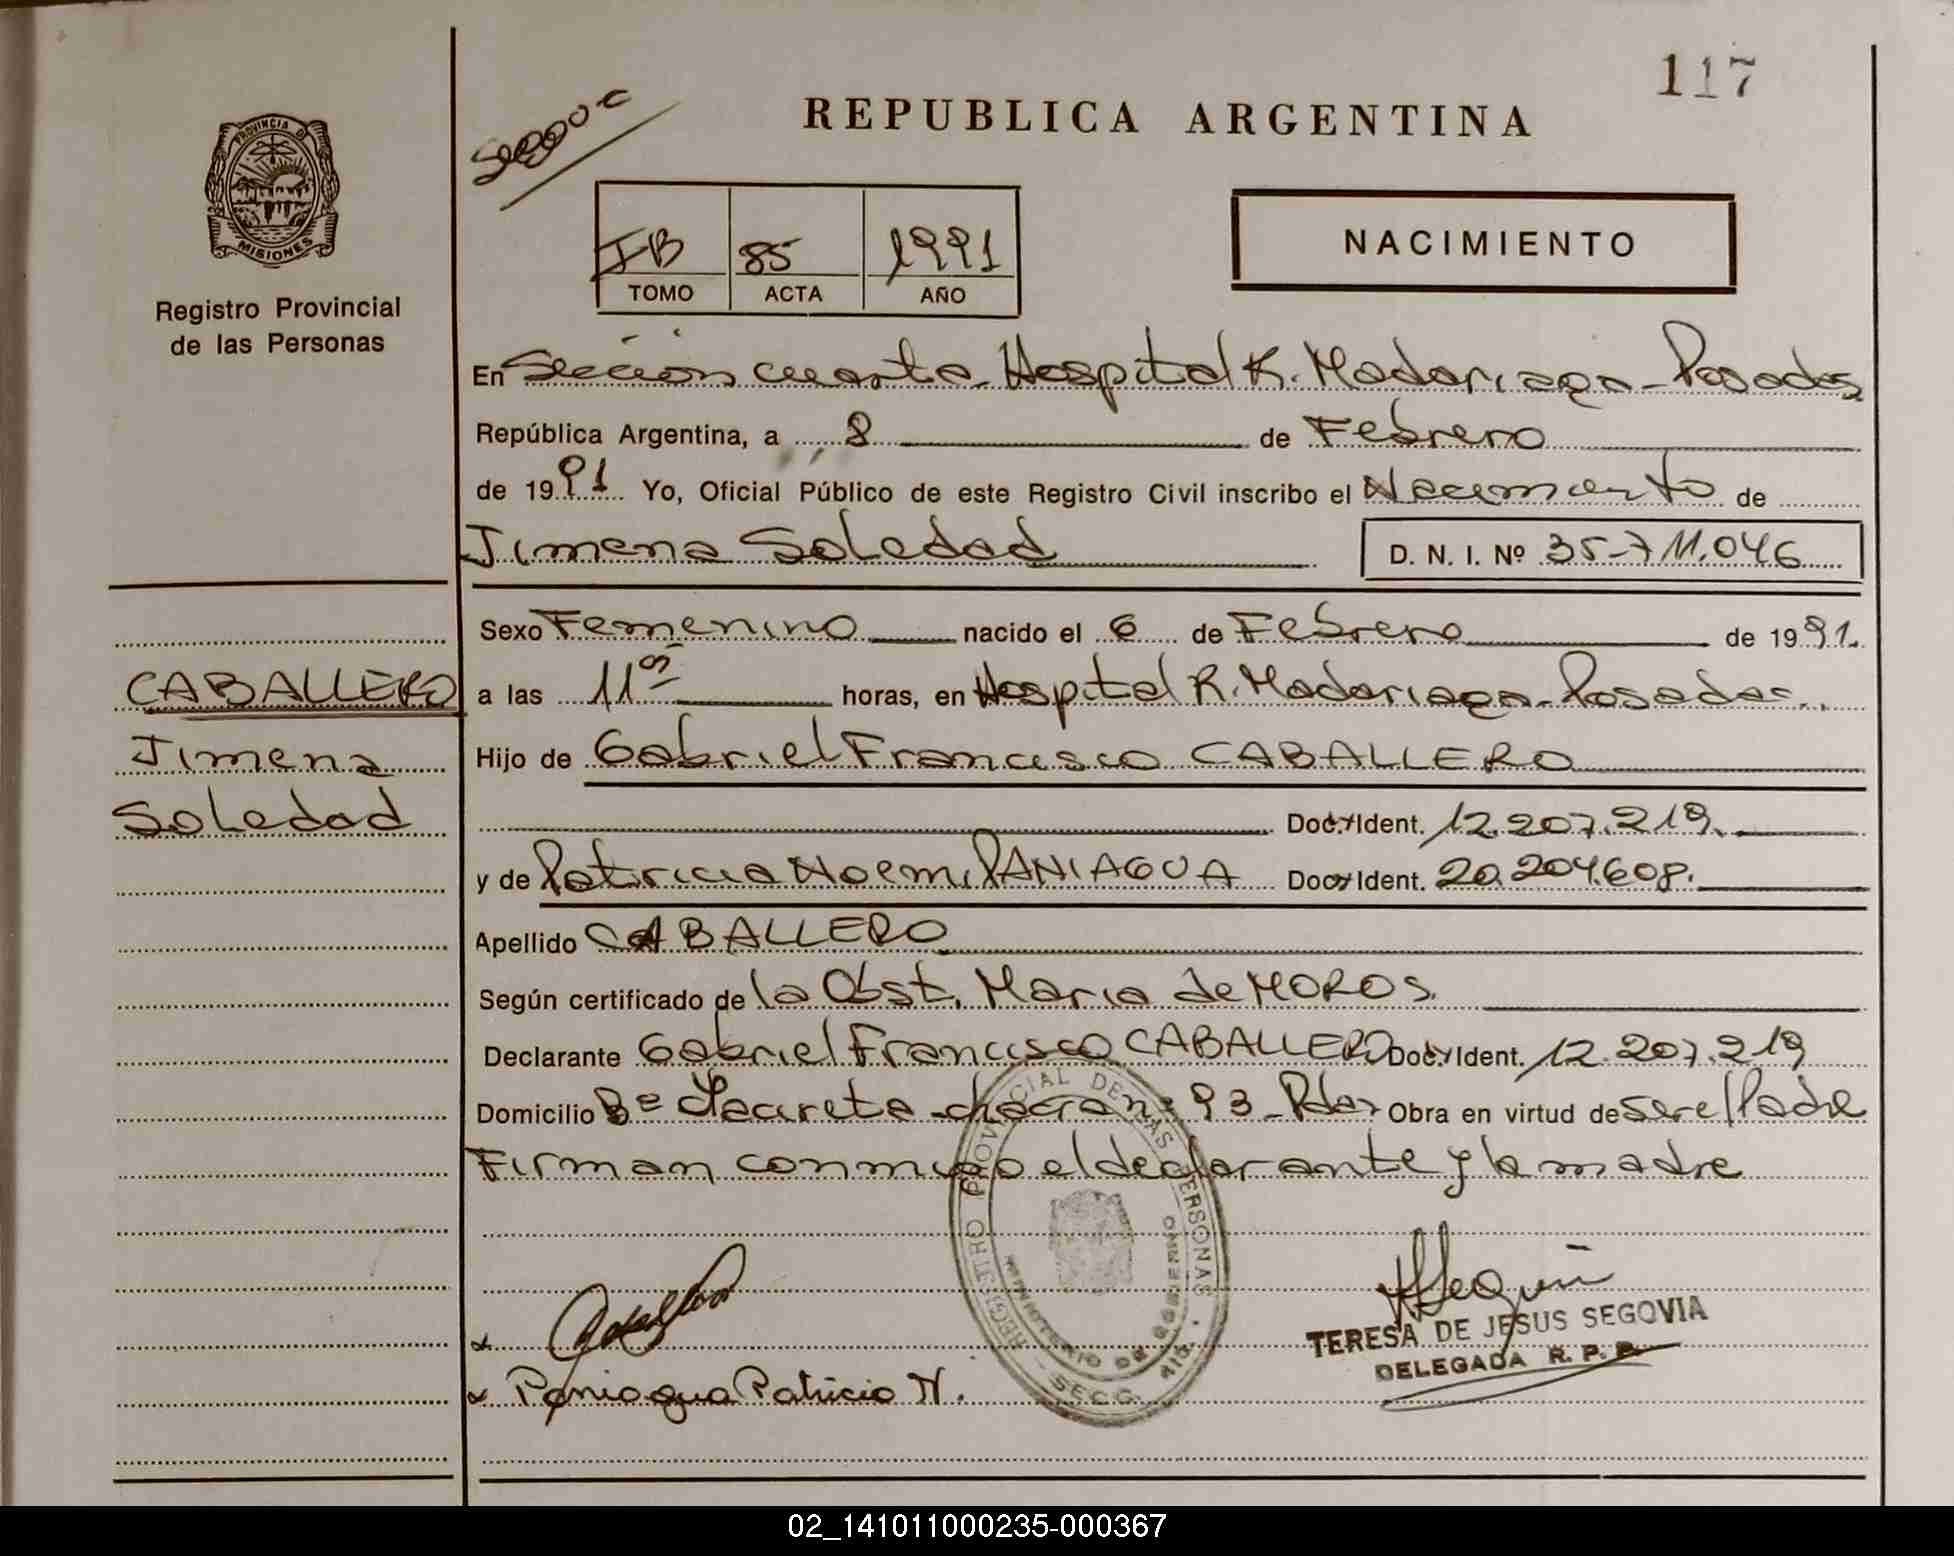 117
REPUBLICA ARGENTINA
PROVINCIA D MISIONES
Registro Provincial
de las Personas
IB 85 1991
TOMO ACTA AÑO
NACIMIENTO
En Sección cuarta Hospital R. Madariaga - Posadas
República Argentina, a 8 de Febrero
de 1991 Yo, Oficial Público de este Registro Civil inscribo el Nacimiento de
Jimena Soledad D. N. I. Nº 35-711.046
Sexo Femenino nacido el 6 de Febrero de 1991.
CABALLERO
Jimena
Soledad
a las 11 horas, en Hospital R. Madariaga - Posadas.
Hijo de Gabriel Francisco CABALLERO
Doc. Ident. 12.207.219.
y de Patricia Noemi PANIAGUA Doc. Ident. 20.204.608.
Apellido CABALLERO
Según certificado de la Obst. Maria de MOROS.
Declarante Gabriel Francisco CABALLERO Doc. Ident. 12.207.219
Domicilio Bº chacra nº 93 - Pdas Obra en virtud de ser el Padre
Firman conmigo el declarante y la madre
REGISTRO PROVINCIAL DE LAS PERSONAS
MINISTERIO DE GOBIERNO
SECC.
TERESA DE JESUS SEGOVIA
DELEGADA R. P. P.
x
x Paniagua Patricia N.
02_141011000235-000367